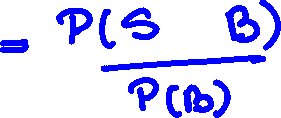 = P(S B)
P(B)